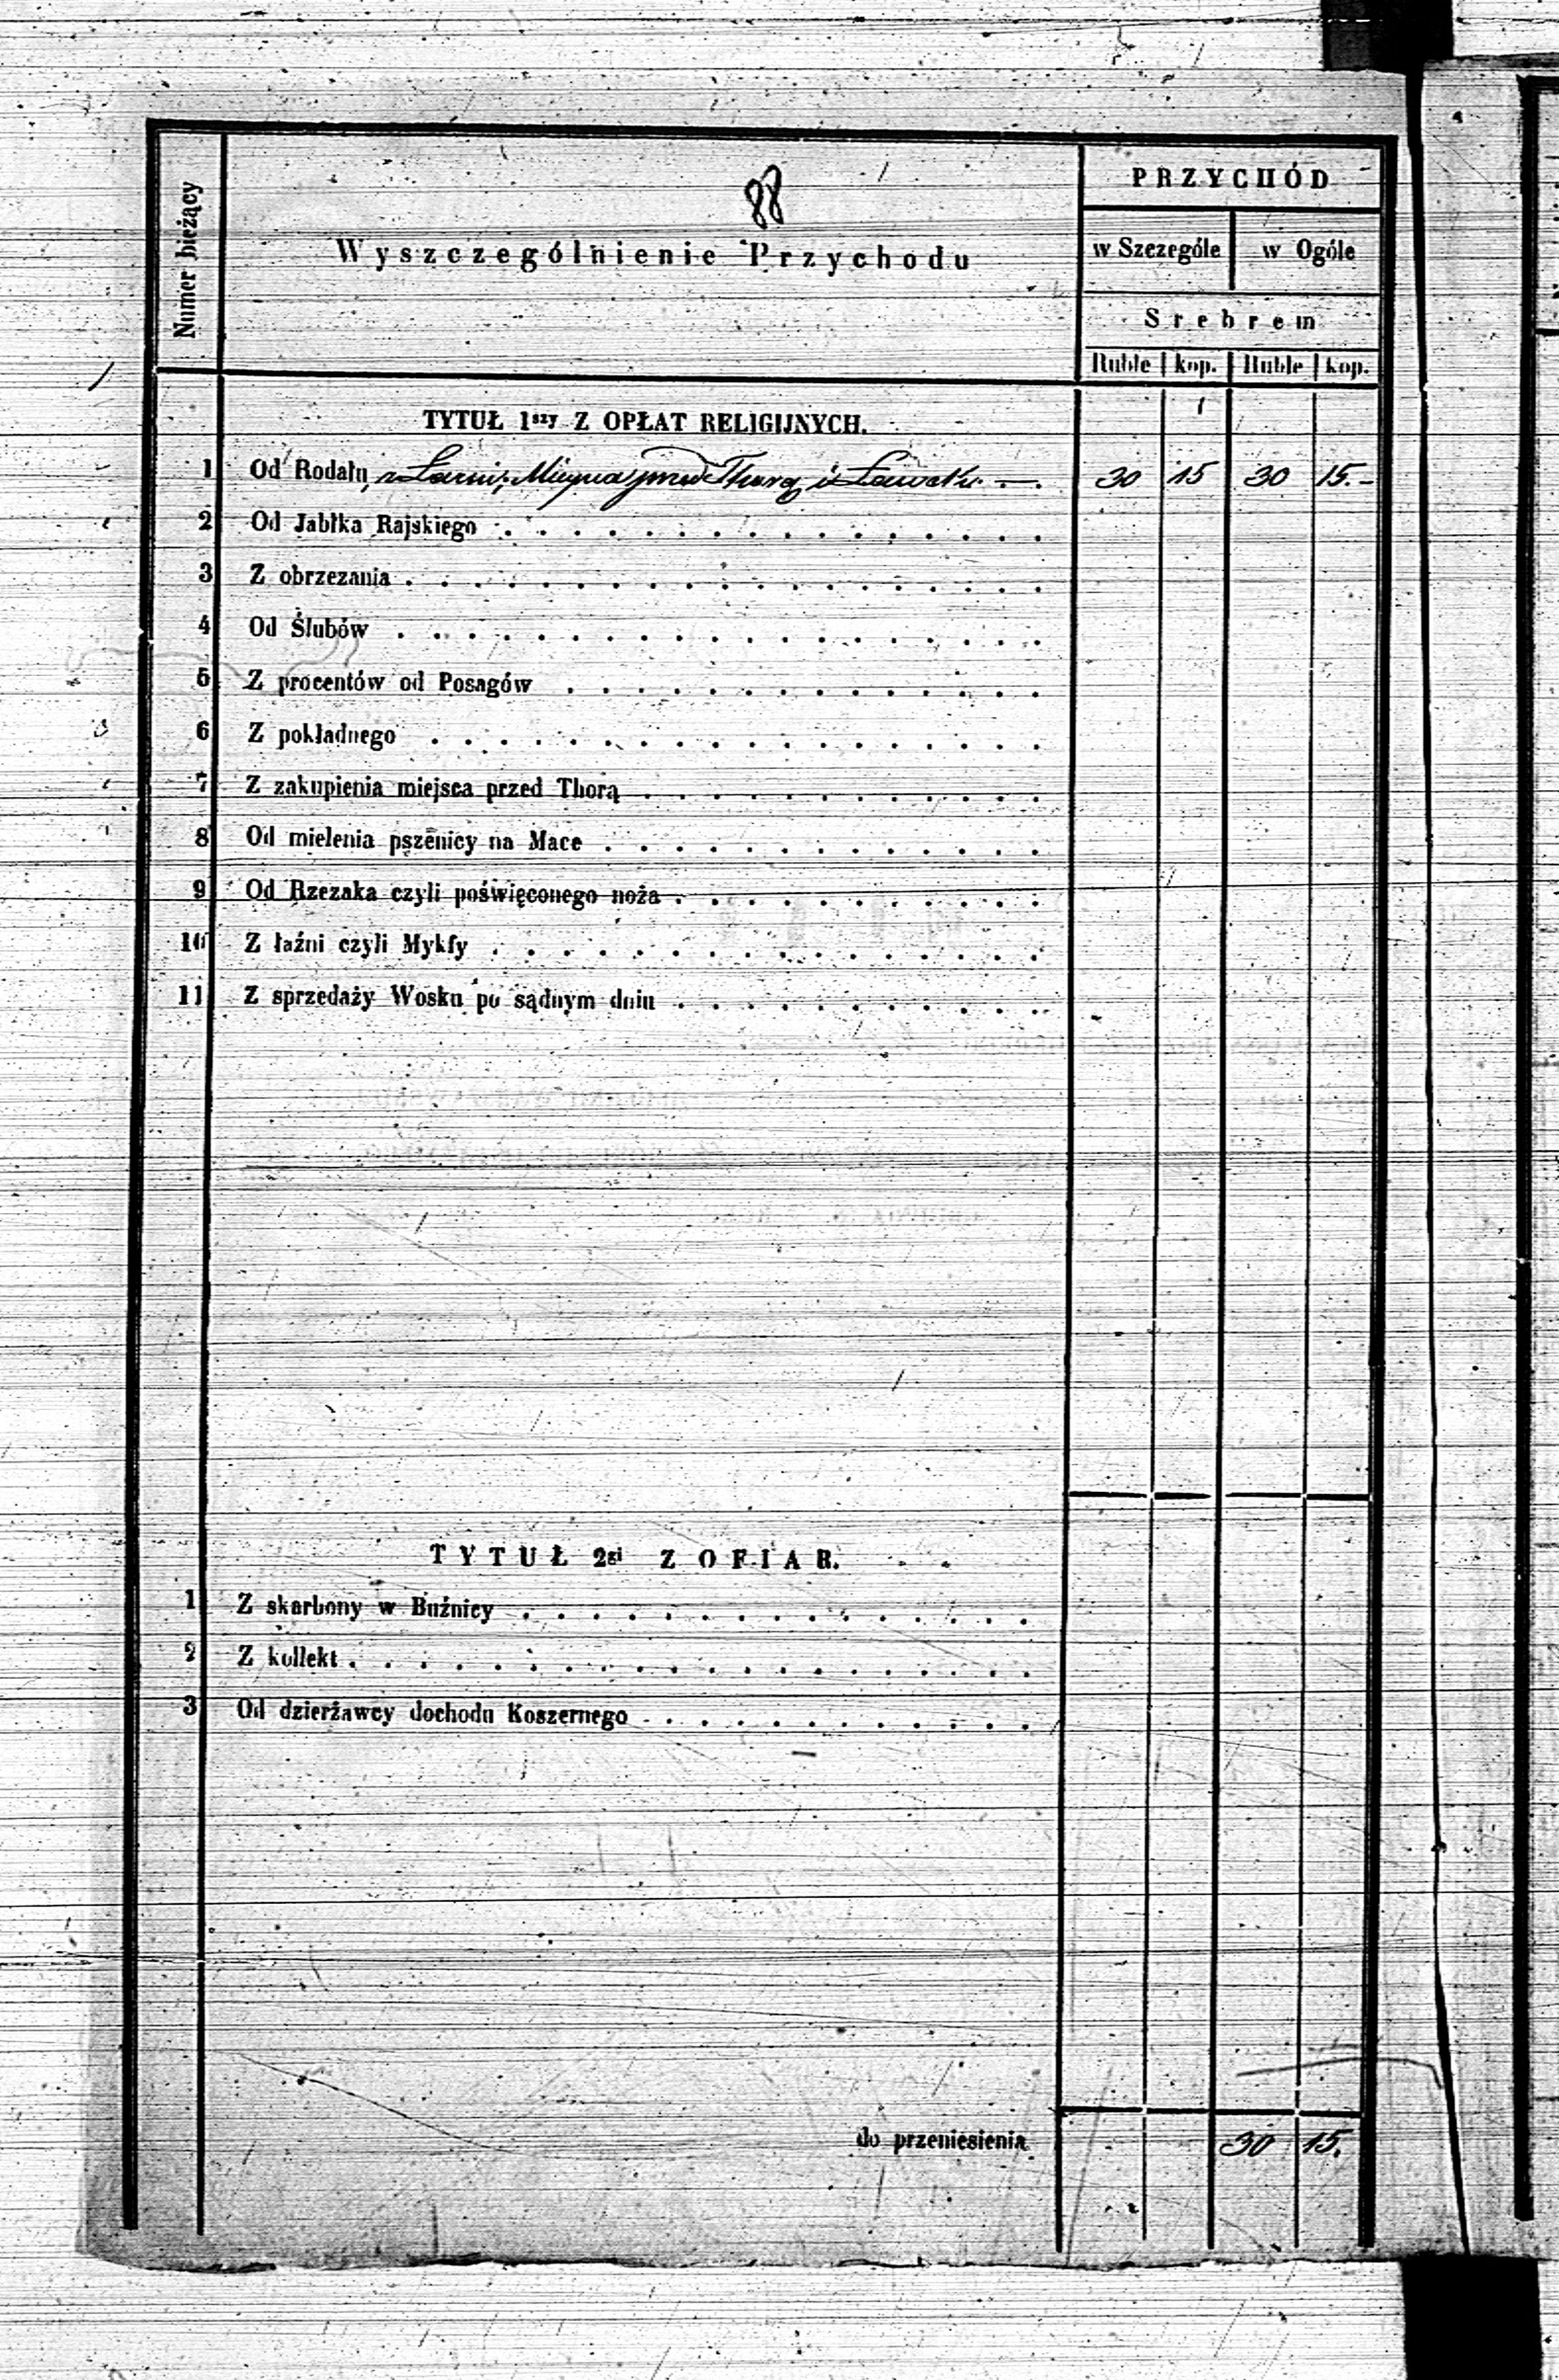 88
Numer bieżący
Wyszczególnienie Przychodu
PRZYCHÓD
w Szczególe w Ogóle
Srebrem
Ruble kop. Ruble kop.
TYTUŁ 1szy Z OPŁAT RELIGIJNYCH.
1 Od Rodału, z Łazni, Mieysca przed Thorą, i z Ławek. — 30 15 30 15.-
2 Od Jabłka Rajskiego
3 Z obrzezania
4 Od Ślubów
5 Z procentów od Posagów
6 Z pokładnego
7 Z zakupienia miejsca przed Thorą
8 Od mielenia pszenicy na Mace
9 Od Rzezaka czyli poświęconego noża
10 Z łaźni czyli Mykfy
11 Z sprzedaży Wosku po sądnym dniu
TYTUŁ 2gi Z OFIAR.
1 Z skarbony w Buźnicy
2 Z kollekt
3 Od dzierżawcy dochodu Koszernego
do przeniesienia 30 15.